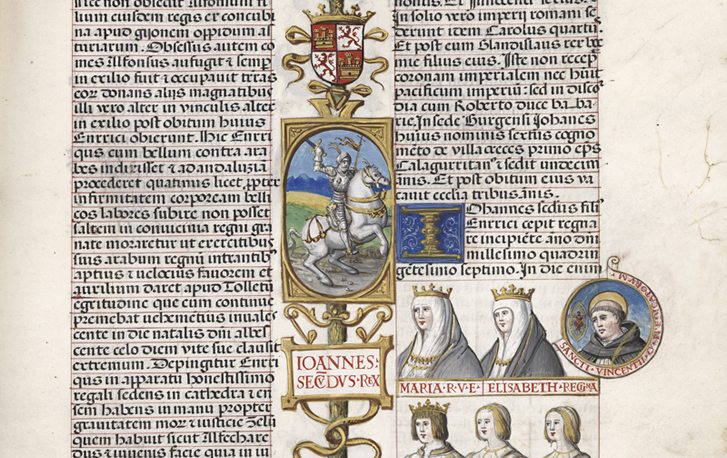 lum eiusdem regis ex concubi
na apud gijonem oppidum al
turiarum. Obsessus autem co
mes Alfonsus aufugit & semp
in exilio fuit & occupavit tr̄as
eor donans alijs magnatibus
illi vero alter in vinculis alter
in exilio post obitum huius
Enrrici obierunt. Hic Enrri
qus cum bellum contra ara
bes indixisset & ad andaluziā
procederet quatinus licet, ꝓpter
infirmitatem corpoream belli
cos labores subire non posset
saltem in convicinia regni gra
nate moraretur ut exercitibus
suis arabum regnū intrantib
aptius & velocius favorem et
auxilium daret apud Tolletū
egritudine que eum continue
premebat vehemētius invales
cente in die natalis dnī albes
cente celo diem vite sue clausit
extremum. Depingitur Enrri
qus in apparatu honestissimo
regali sedens in cathedra & en
sem habens in manu propter
gravitatem mor & iusticie zelū
quem habuit sicut Altechare
dus & iuvenis facie quia in iu
IOANNES:
SECV̄DVS·REX
In solio vero imperii romani se
derunt idem Carolus quartus
Et post eum
nie filius eius. Iste non recep
coronam imperialem nec huit
pacificum imperiū: sed in discor
dia cum Roberto duce ba ba
rie. In sede Burgensi Johanes
huius nominis sextus cogno
mēto de villa œces primo ep̄s
Calagurritan & sedit undecim
annis. Et post obitum eius va
cavit ecclīa tribus annis.
IOhannes sedus fili
Enrrici cepit regna
re incipiēte año dnī
millesimo quadrin
gētesimo septimo. In die enim
MARIA·R·V·E· ELISABETH·REGINA
SANCTI·VINCENTII